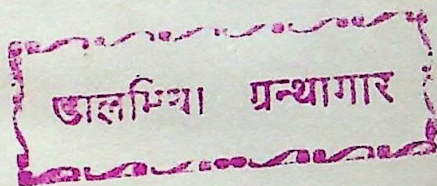 डालमिया ग्रन्थागार